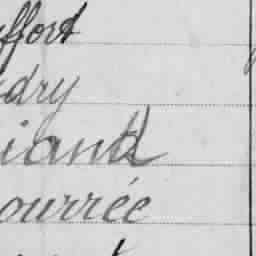 ffort
dry
iand
ourrée